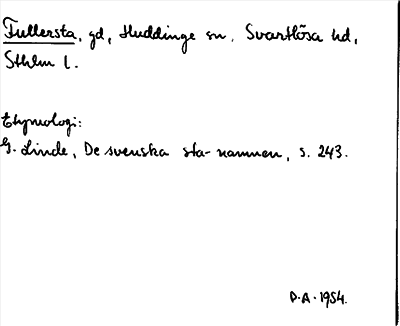 Fullersta, gd, Huddinge sn, Svartlösa hd,
Sthlm l.
Etymologi:
G. Linde, De svenska sta-namnen, s. 243.
D.A. 1954.